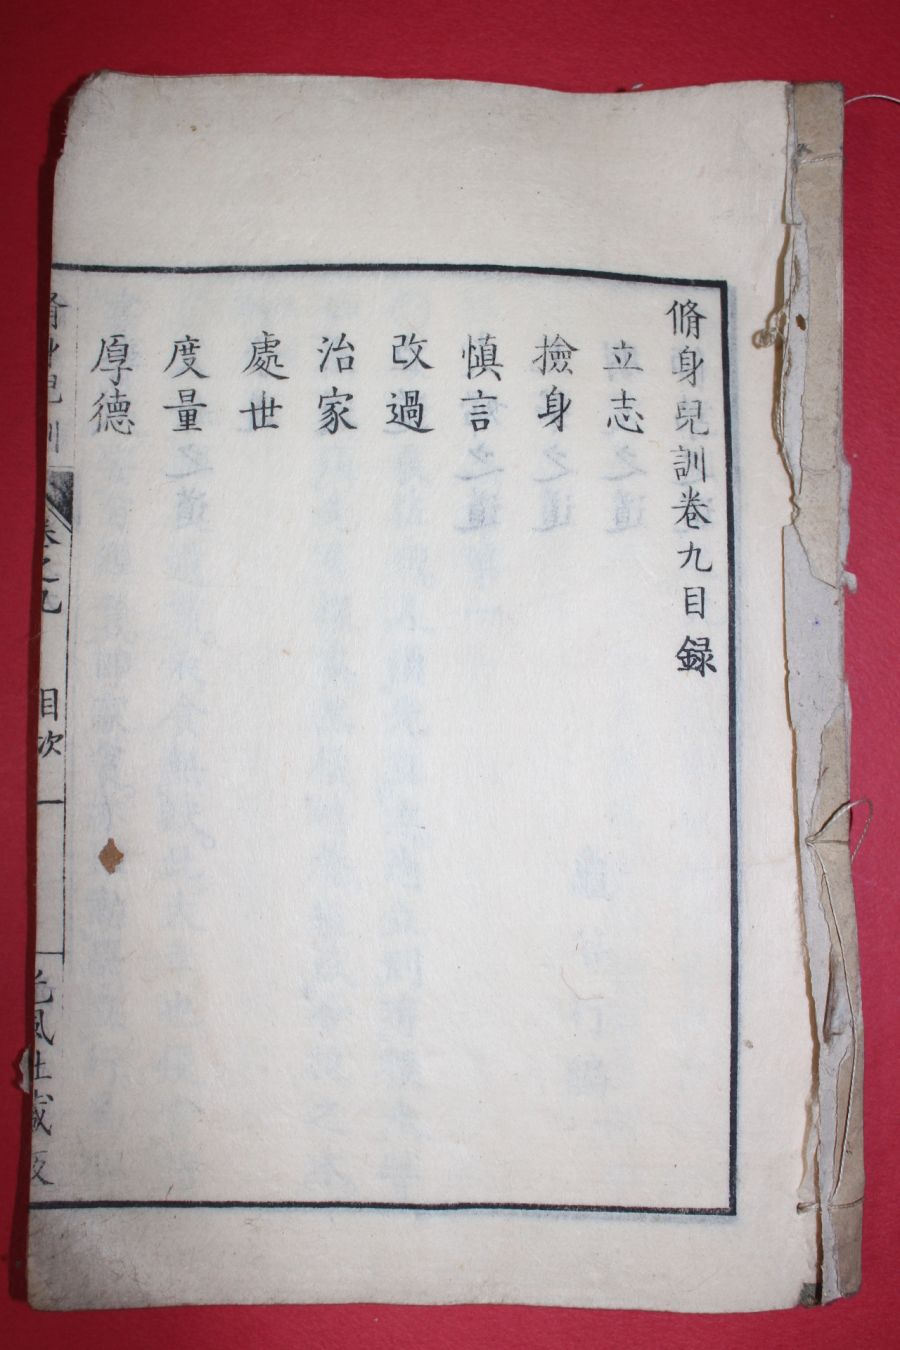 脩身兒訓卷九目録
立志
撿身
慎言
改過
治家
處世
度量
厚德
脩身兒訓
卷之九
目次
一
光風社藏版